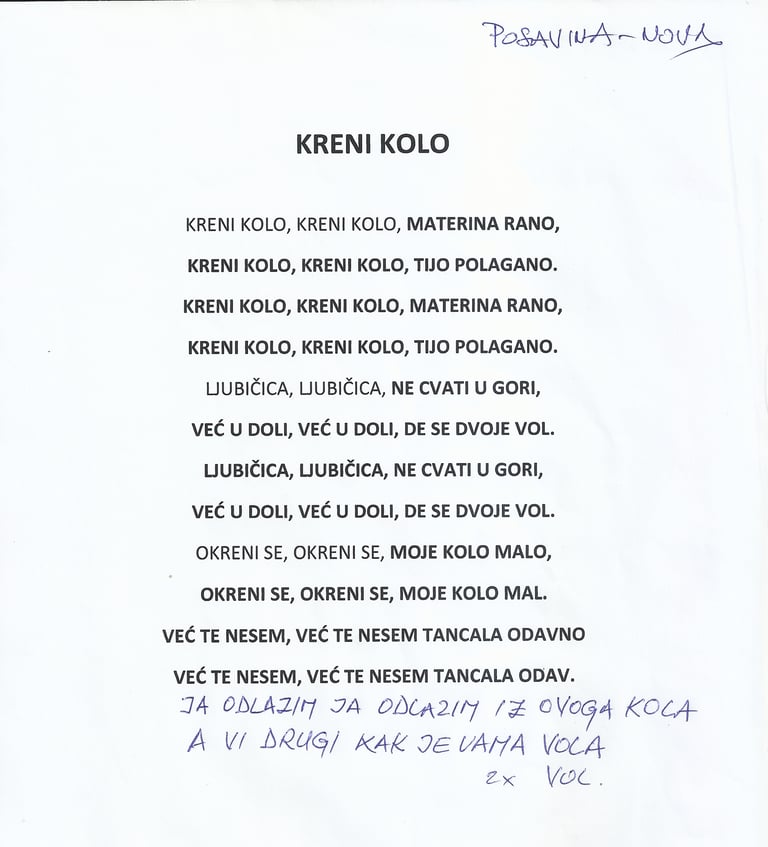 POSAVINA - NOVA
KRENI KOLO
KRENI KOLO, KRENI KOLO, MATERINA RANO,
KRENI KOLO, KRENI KOLO, TIJO POLAGANO.
KRENI KOLO, KRENI KOLO, MATERINA RANO,
KRENI KOLO, KRENI KOLO, TIJO POLAGANO.
LJUBIČICA, LJUBIČICA, NE CVATI U GORI,
VEĆ U DOLI, VEĆ U DOLI, DE SE DVOJE VOL.
LJUBIČICA, LJUBIČICA, NE CVATI U GORI,
VEĆ U DOLI, VEĆ U DOLI, DE SE DVOJE VOL.
OKRENI SE, OKRENI SE, MOJE KOLO MALO,
OKRENI SE, OKRENI SE, MOJE KOLO MAL.
VEĆ TE NESEM, VEĆ TE NESEM TANCALA ODAVNO
VEĆ TE NESEM, VEĆ TE NESEM TANCALA ODAV.
JA ODLAZIM JA ODLAZIM IZ OVOGA KOLA
A VI DRUGI KAK JE VAMA VOLA
2x VOL.